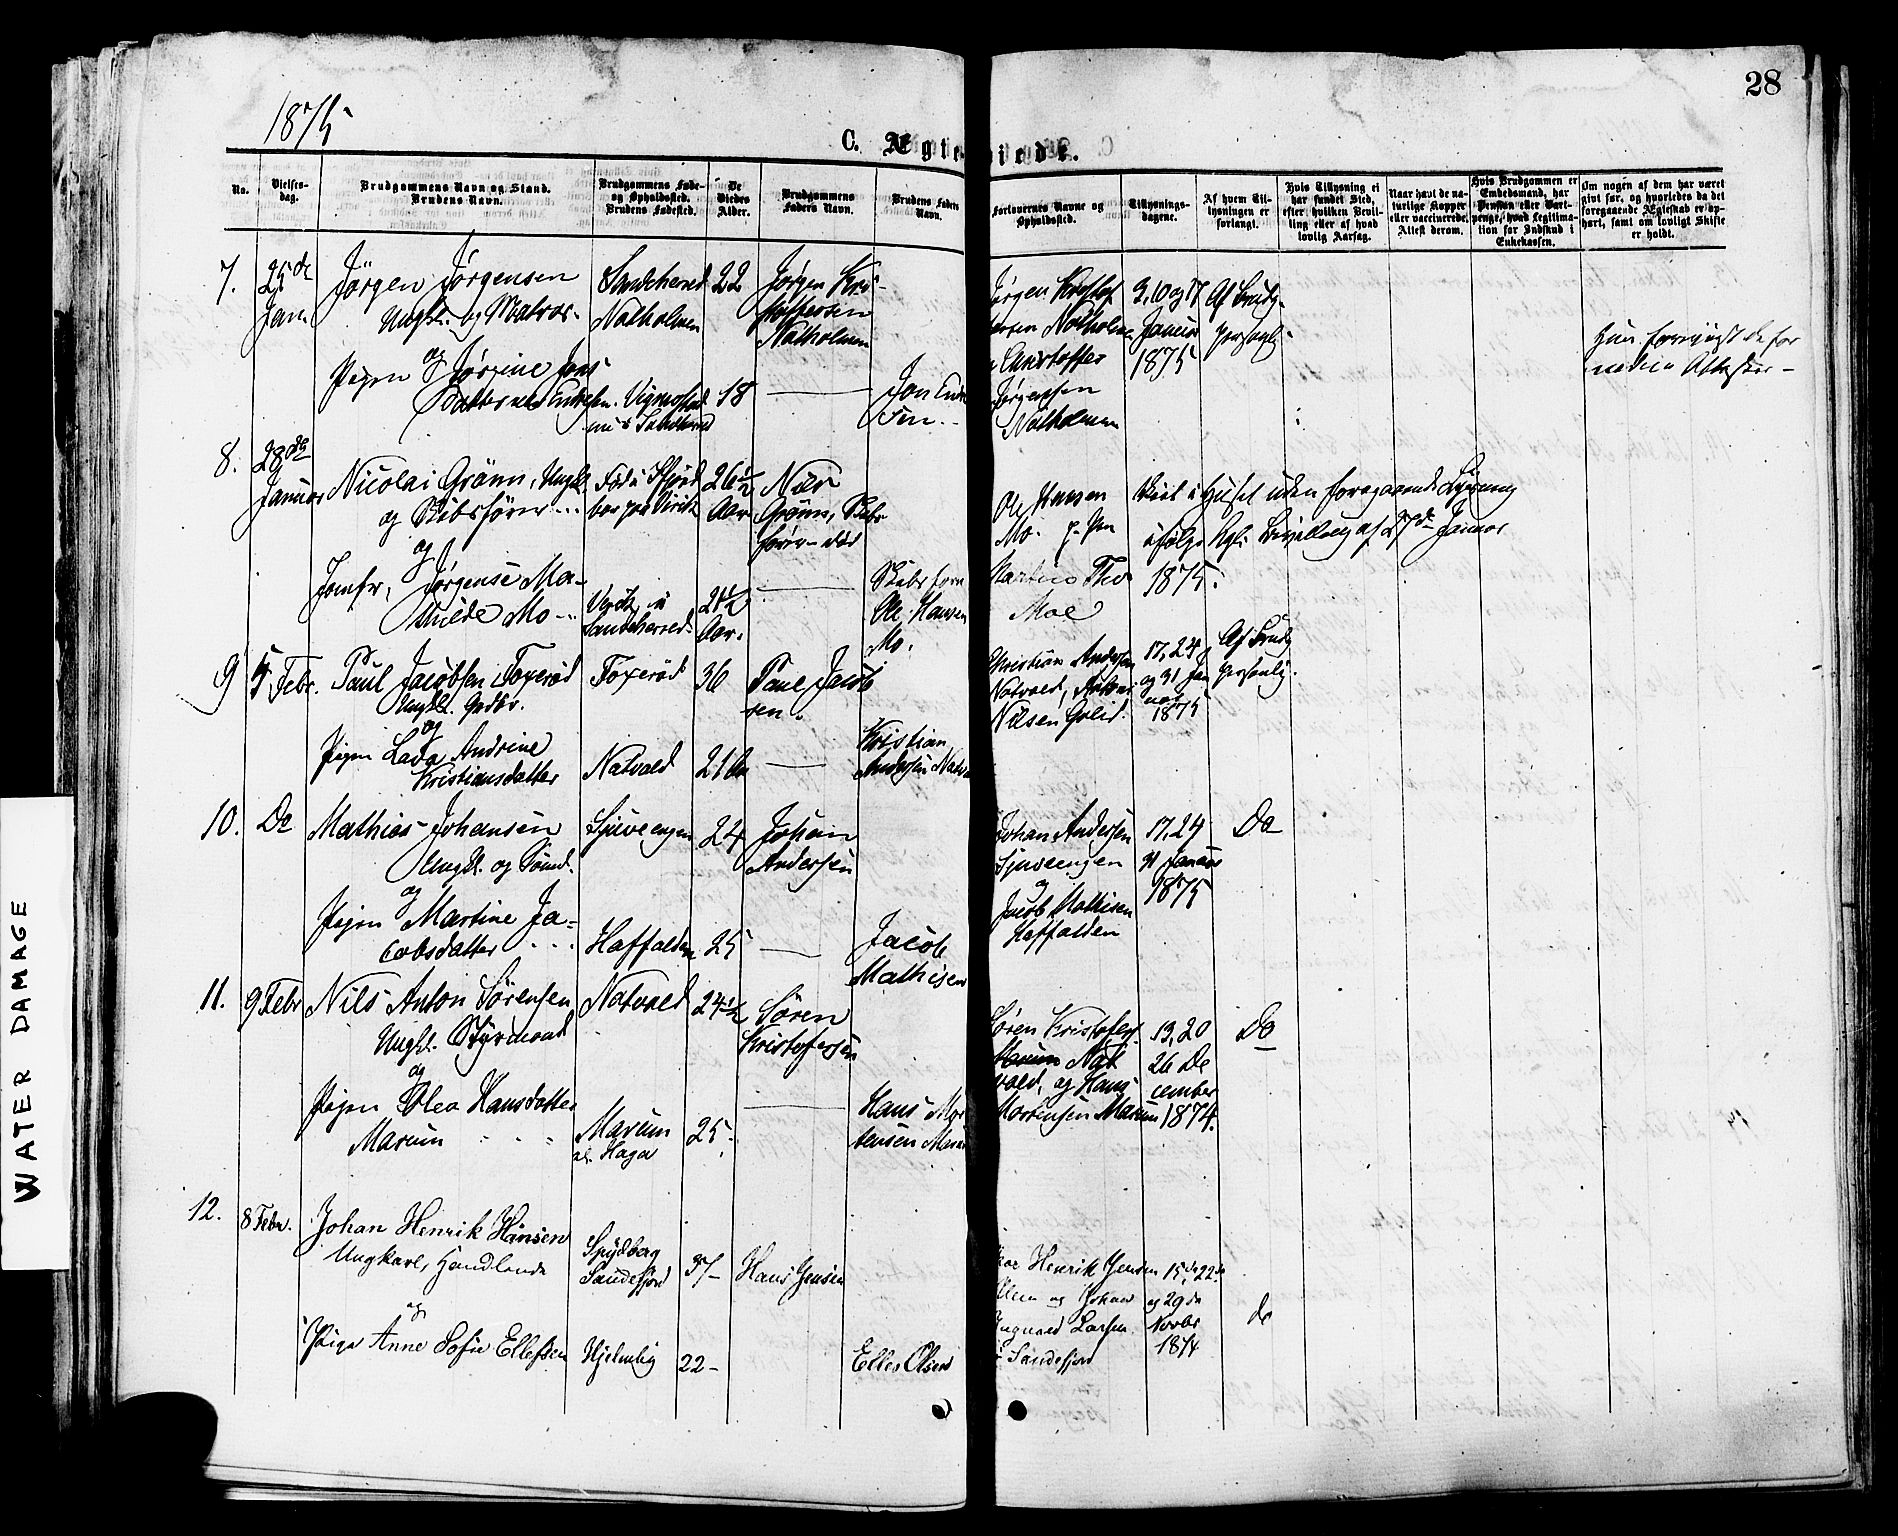 28
1875
C. Ægteviede.
No.
Vielses-
dag.
Brudgommens Navn og Stand.
Brudens Navn.
Brudgommens Føde-
og Opholdssted.
Brudens Fødested.
De
Viedes
Alder.
Brudgommens
Faders Navn.
Brudens Faders
Navn.
Forlovernes Navne og
Opholdssted.
Tillysnings-
dagene.
Af hvem Til-
lysningen er
forlangt.
Hvis Tillysning ei
har fundet Sted,
efter hvilken Bevil-
ling eller af hvad
lovlig Aarsag.
Naar havt de na-
turlige Kopper
eller vaccinerede.
Attest derom.
Hvis Brudgommen er
Embedsmand, har
Pension eller Vart-
penge, hvad Legitima-
tion for Indskud i
Enkekassen.
Om nogen af dem har været
gift før, og hvorledes da det
foregaaende Ægteskab er op-
hørt, samt om lovligt Skifte
er holdt.
7.
25de
Jan.
Jörgen Jørgensen
Ungk. og Matros-
og
Pigen Jørgine Jons
Datter
Sandeherred
Natholmen
22
18
Jørgen Kri-
stoffersen
Natholmen
Jon
Jørgen Kristof
fersen Natholmen
Christoffer
Jørgensen
Natholmen
3, 10 og 17
Januar
1875
Af Brudg.
personl.
8.
28de
Januar
Nicolai Grönn, Ungk.
og Skibsfører
og
Jomfr. Jørgense Ma-
thilde Mo
Sandeherred
26½
Aar
21½
Aar.
Nils
Grönn, Skibs
fører
Skibsfører
Ole Hansen
Mo.
Ole Hansen
Mo.
Martin
Moe
Viet i Huset uden foregaaende Lysning
ifølge Kgl. Bevilling af 27de Januar
1875.
9
5 Febr.
Paul Jacobsen Foxerød
Ungk. Grdbr.
og
Pigen Lava Andrine
Kristiansdatter
Foxerød
Natvald
36
21
Paul Jacob
sen.
Kristian
Andersen Natva
Christian Andersen
Natvald,
Nilsen
17, 24
og 31 Ja
nuar
1875
Af Brudg
personlig.
10.
Do
Mathias Johansen
Ungk. og Sømd.
og
Pigen Martine Ja-
cobsdatter
Sjuveengen
Haffalden
24
25
Johan
Andersen
Jacob
Mathisen
Johan Andersen
Sjuveengen
og
Jacob Mathisen
Haffalden
17, 24
31 Januar
1875
Do
11.
9 Febr
Nils Anton Sørensen
Ungk. Styrmand
og
Pigen Olea Hansdatter
Marum
Natvald
Marum
al. Haga
24½
25.
Sören
Kristofersen
Hans Mor
tensen Marum
Sören Kristofers.
Nat
vald, og Hans
Mortensen Marum
13, 20
26 De
cember
1874.
Do
12.
8 Febr.
Johan Henrik Hansen
Ungkarl, Handlende
og
Pige Anne Sofie Ellefsen
Spydberg
Sandefjord
37-
22-
Hans Jensen
Ellef Olsen
Henrik Jensen
og Johan
Ingvald Larsen
Sandefjord
15de, 22de
og 29de
Novbr
1874
do
WATER DAMAGE